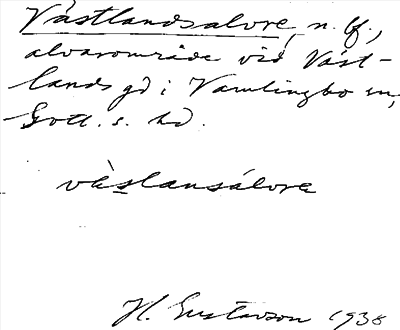 Västlandsalvre, n. bf.,
alvarområde vid Väst-
lands gd i Vamlingbo sn,
Gotl. s. hd.
vàslansálvre
H. Gustavson 1938